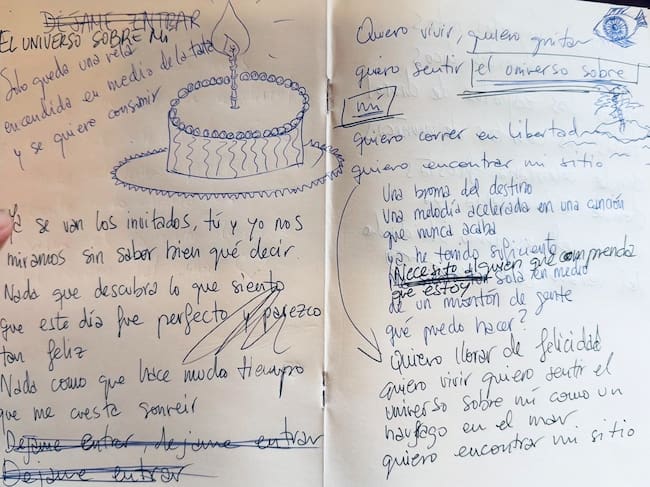 DÉJAME ENTRAR
EL UNIVERSO SOBRE MI
Solo queda una vela
encendida en medio de la tarta
y se quiere consumir
Ya se van los invitados, tú y yo nos
miramos sin saber bien qué decir.
Nada que descubra lo que siento
que este día fue perfecto y parezco
tan feliz
Nada como que hace mucho tiempo
que me cuesta sonreír
Dejame entrar, dejame entrar
Dejame entrar
Quiero vivir, quiero gritar
quiero sentir el universo sobre
mi
quiero correr en libertad
quiero encontrar mi sitio
Una broma del destino
Una melodía acelerada en una canción
que nunca acaba
ya he tenido suficiente
Necesito alguien que comprenda
que estoy sola en medio
de un montón de gente
qué puedo hacer?
Quiero llorar de felicidad
quiero vivir quiero sentir el
universo sobre mí como un
naufrago en el mar
quiero encontrar mi sitio